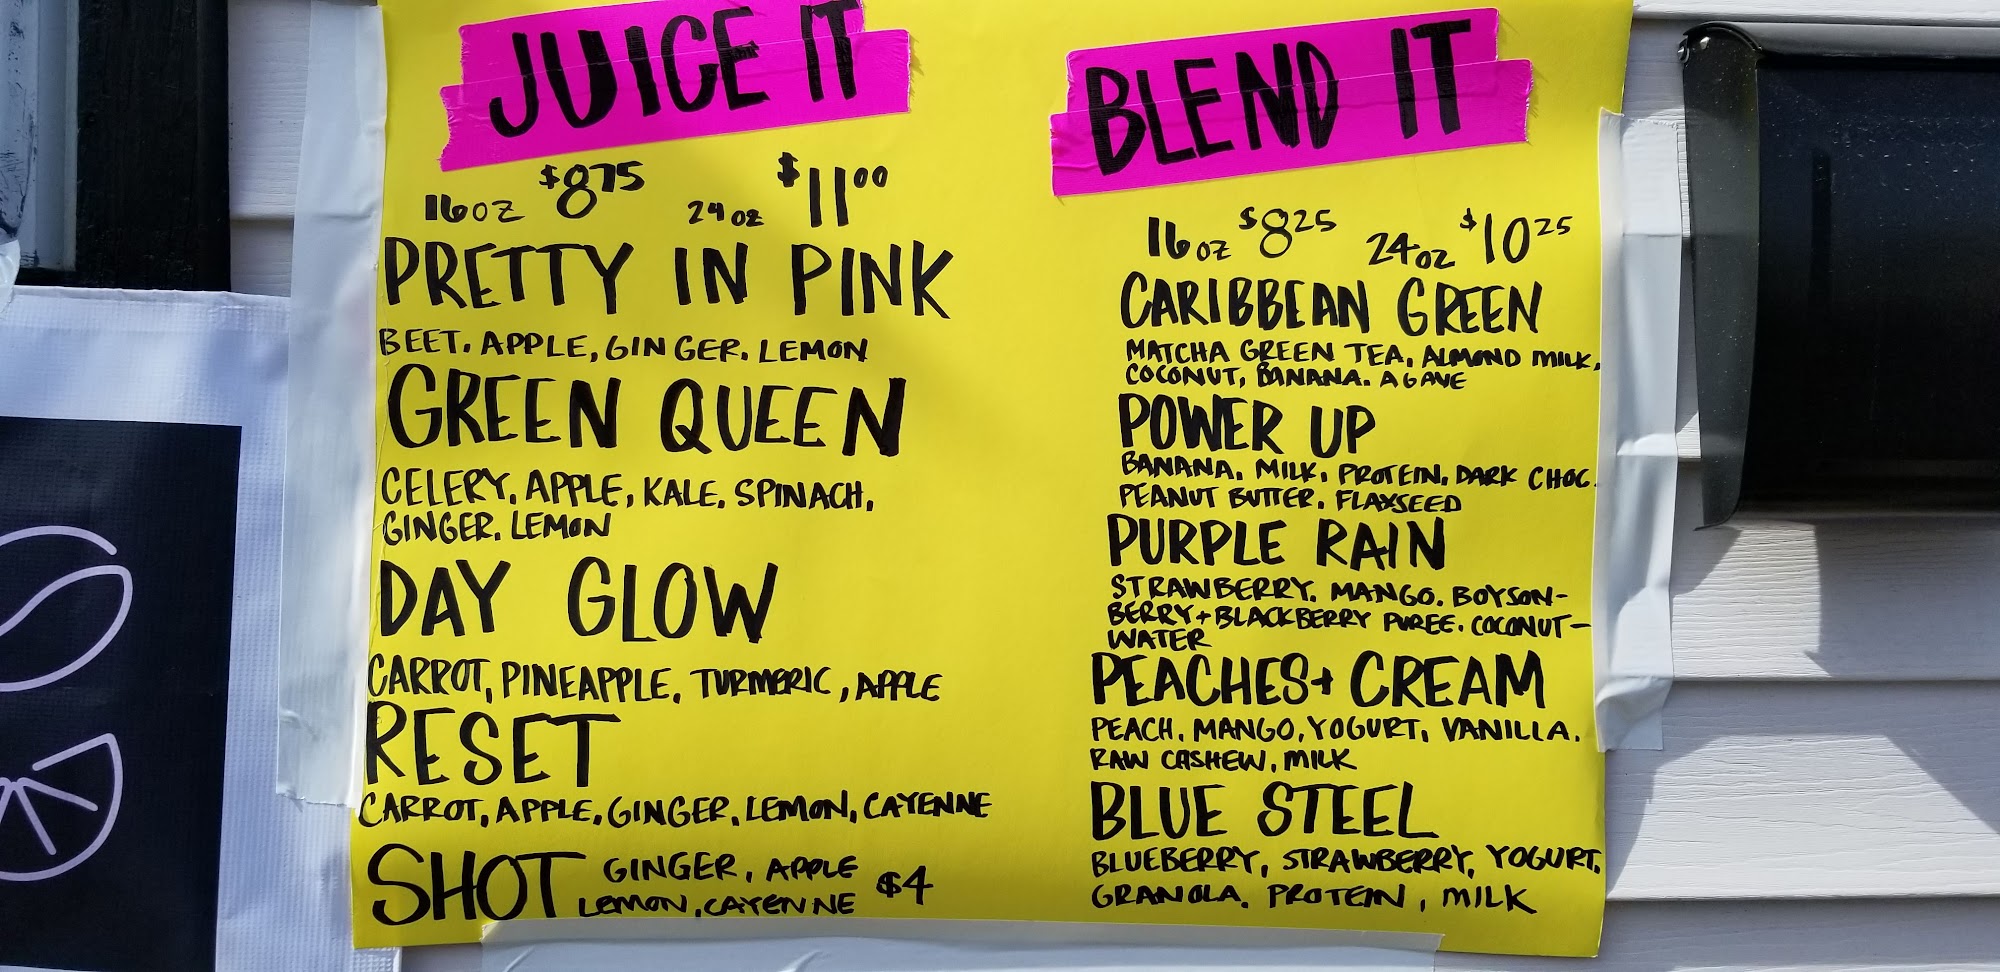 JUICE IT
16oz $8.75 24oz $11.00
PRETTY IN PINK
BEET, APPLE, GINGER, LEMON
GREEN QUEEN
CELERY, APPLE, KALE, SPINACH,
GINGER, LEMON
DAY GLOW
CARROT, PINEAPPLE, TURMERIC, APPLE
RESET
CARROT, APPLE, GINGER, LEMON, CAYENNE
SHOT GINGER, APPLE
LEMON, CAYENNE $4
BLEND IT
16oz $8.25 24oz $10.25
CARIBBEAN GREEN
MATCHA GREEN TEA, ALMOND MILK,
COCONUT, BANANA, AGAVE
POWER UP
BANANA, MILK, PROTEIN, DARK CHOC.
PEANUT BUTTER, FLAXSEED
PURPLE RAIN
STRAWBERRY, MANGO, BOYSON-
BERRY + BLACKBERRY PUREE, COCONUT-
WATER
PEACHES + CREAM
PEACH, MANGO, YOGURT, VANILLA,
RAW CASHEW, MILK
BLUE STEEL
BLUEBERRY, STRAWBERRY, YOGURT,
GRANOLA, PROTEIN, MILK